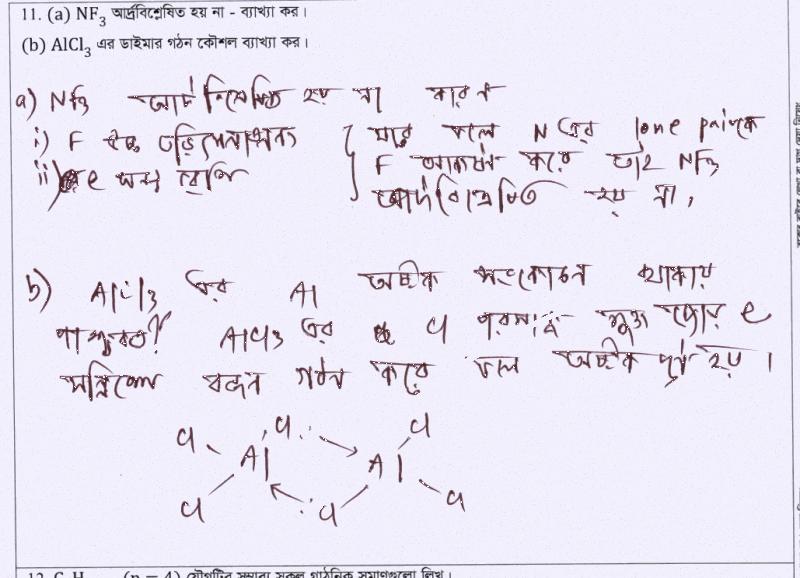 11. (a) NF₃ আর্দ্রবিশ্লেষিত হয় না - ব্যাখ্যা কর।
(b) AlCl₃ এর ডাইমার গঠন কৌশল ব্যাখ্যা কর।
a) NF₃ আর্দ্র বিশ্লেষিত হয় না কারণ
i) F এর তড়িৎঋণাত্মকতা
ii) e ঘনত্ব বেশি
যার ফলে N এর lone pair কে
F আকর্ষণ করে তাই NF₃
আর্দ্রবিশ্লেষিত হয় না,
b) AlCl₃ এর Al অষ্টক সংকোচন থাকায়
পার্শ্ববর্তী AlCl₃ এর Cl পরমাণু মুক্ত জোড় e
সন্নিবেশ বন্ধন গঠন করে ফলে অষ্টক পূর্ণ হয়।
Cl Cl Cl
Al Al
Cl Cl Cl